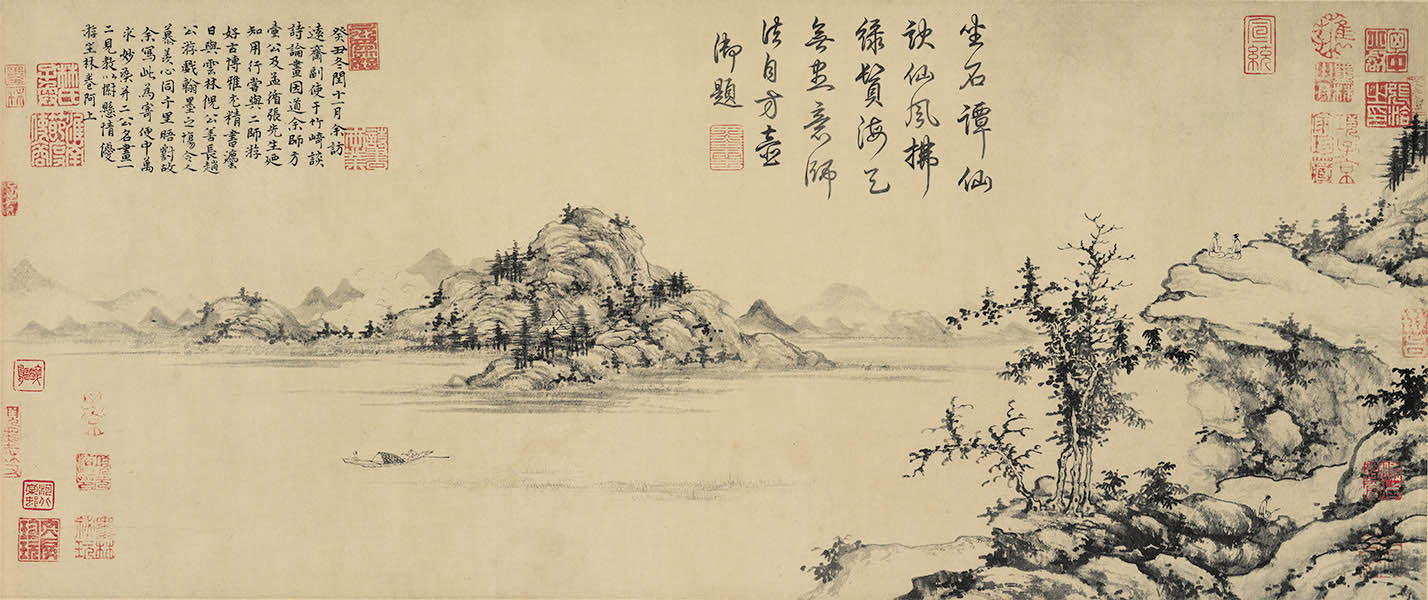 項子京
家珍藏
宣統
坐石譚仙
訣仙風拂
綠鬢海天
無盡意師
法自方壺
御題
癸丑冬閏十一月余訪
遠齋副使于竹崎談
詩論畫因道余師方
壺公及孟循張先生迺
知用行嘗與二師游
好古博雅尤精書灋
日與雲林倪公善長趙
公游戲翰墨之場令人
慕羨心同千里晤對故
余寫此為寄便中萬
求妙染并二公名畫一
二見教以慰懸情優
游生林卷阿上